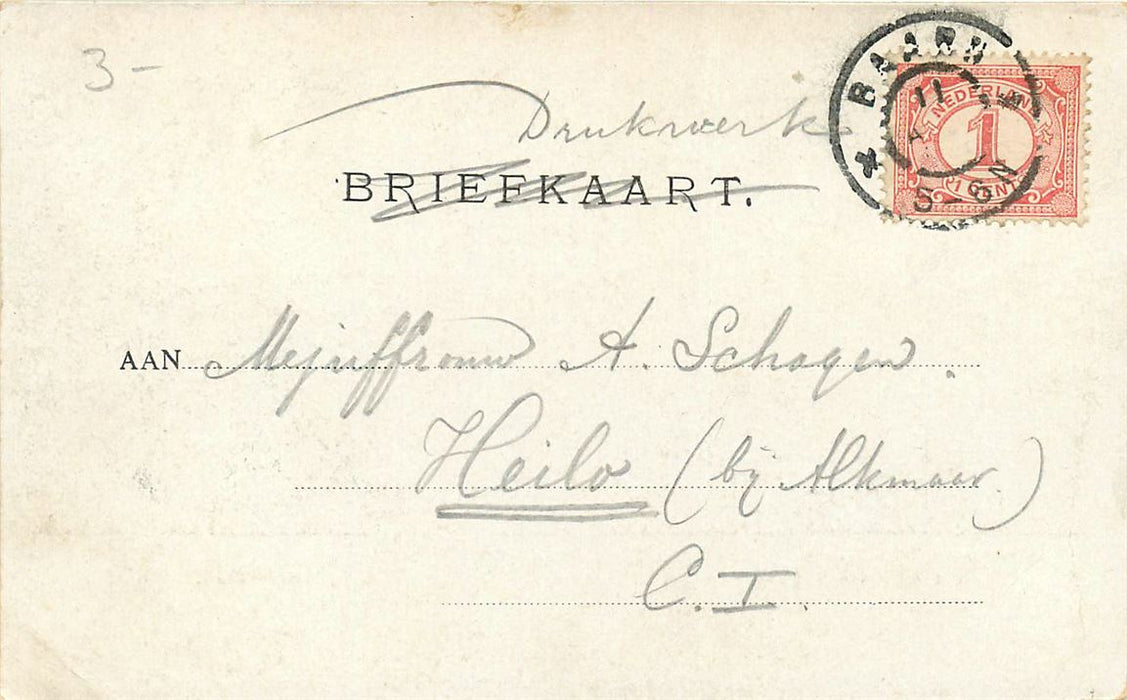 3-
BAARN
11
5-6N
NEDERLAND
1
1 CENT
Drukwerk
BRIEFKAART.
AAN Mejuffrouw A. Schagen.
Heilo (bij Alkmaar.)
C.I.